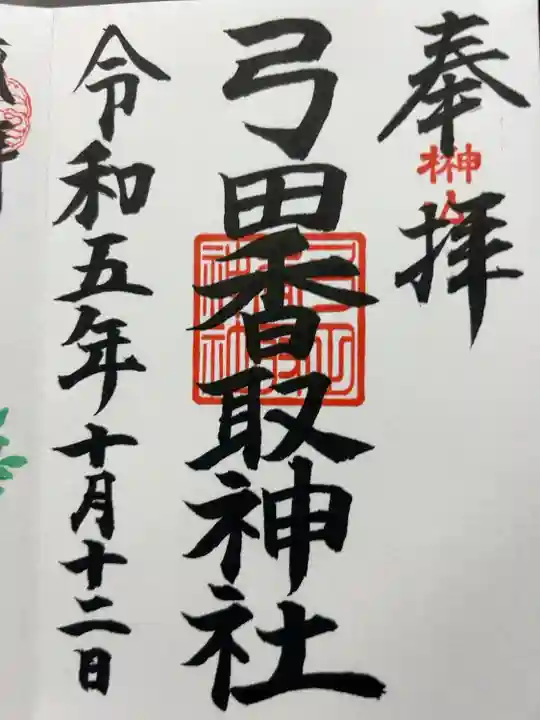 奉拝
榊山
弓田香取神社
令和五年十月十二日